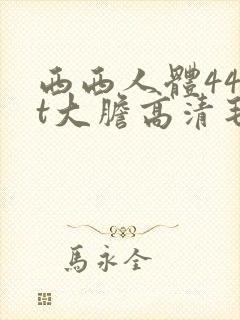 西西人體44
t大膽高清毛
馬永全